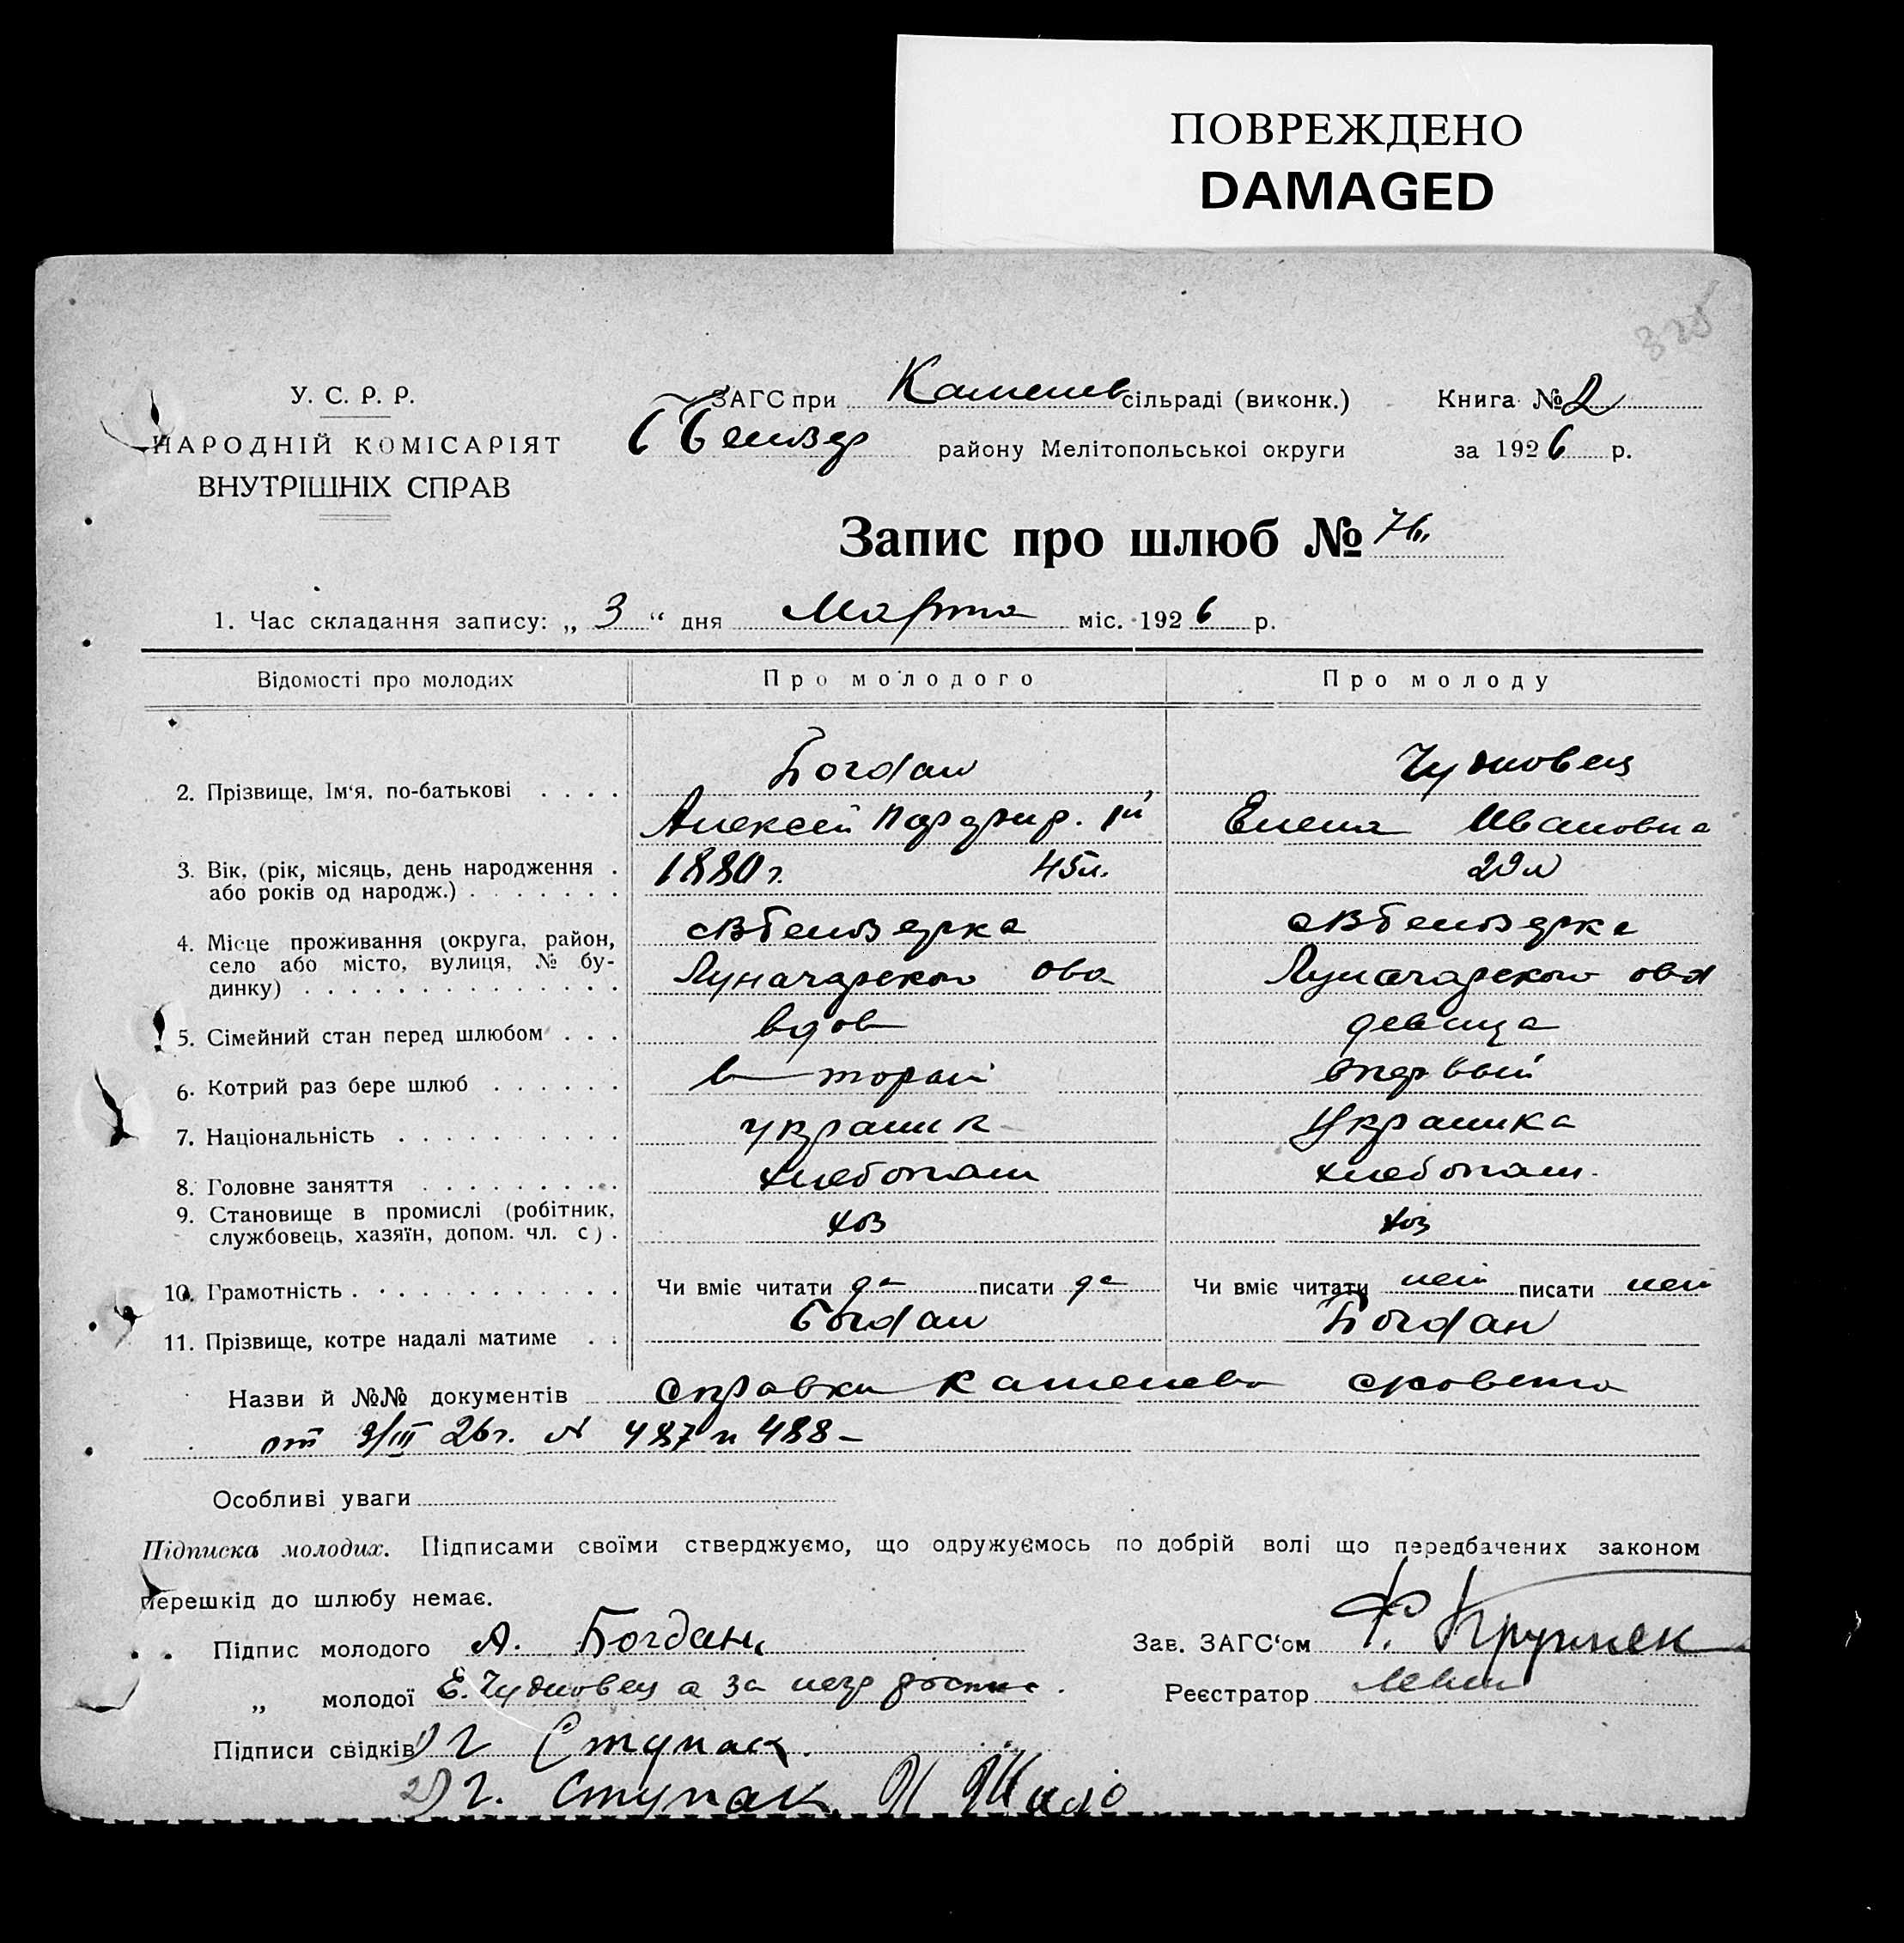 ПОВРЕЖДЕНО
DAMAGED
325
У. С. Р. Р.
НАРОДНІЙ КОМІСАРІЯТ
ВНУТРІШНІХ СПРАВ
ЗАГС при Каменев сільраді (виконк.) Книга № 2
району Мелітопольської округи за 1926 р.
Запис про шлюб №
1. Час складання запису: „ 3 “ дня Марта міс. 1926 р.
Відомості про молодих Про молодого Про молоду
Богдан Чудновец
2. Прізвище, Ім'я, по-батькові . . . .
Алексей Парфир. Елена Ивановна
3. Вік, (рік, місяць, день народження . 1880 г. 45 л. 29 л
або років од народж.) . . . . . . .
4. Місце проживання (округа, район,
село або місто, вулиця, № бу-
динку) . . . . . . . . . . . . . . Луначарского ова Луначарского ова
5. Сімейний стан перед шлюбом . . . вдов девица
6. Котрий раз бере шлюб . . . . . . второй первый
7. Національність . . . . . . . . . . украин Украинка
8. Головне заняття . . . . . . . . . хлебопаш хлебопаш.
9. Становище в промислі (робітник, хоз хоз
службовець, хазяїн, допом. чл. с) .
10. Грамотність . . . . . . . . . . . . Чи вміє читати да писати да Чи вміє читати нет писати нет
11. Прізвище, котре надалі матиме . . Богдан Богдан
Назви й №№ документів справки Каменев
от /III 26 г. № 487 и 488 –
Особливі уваги
Підписка молодих. Підписами своїми стверджуємо, що одружуємось по добрій волі що передбачених законом
перешкід до шлюбу немає.
Підпис молодого А. Богдан Зав. ЗАГС'ом
„ молодої Е. Чудновец а за негр Реєстратор
Підписи свідків 1) Г Ступак.
2) Г. Ступак